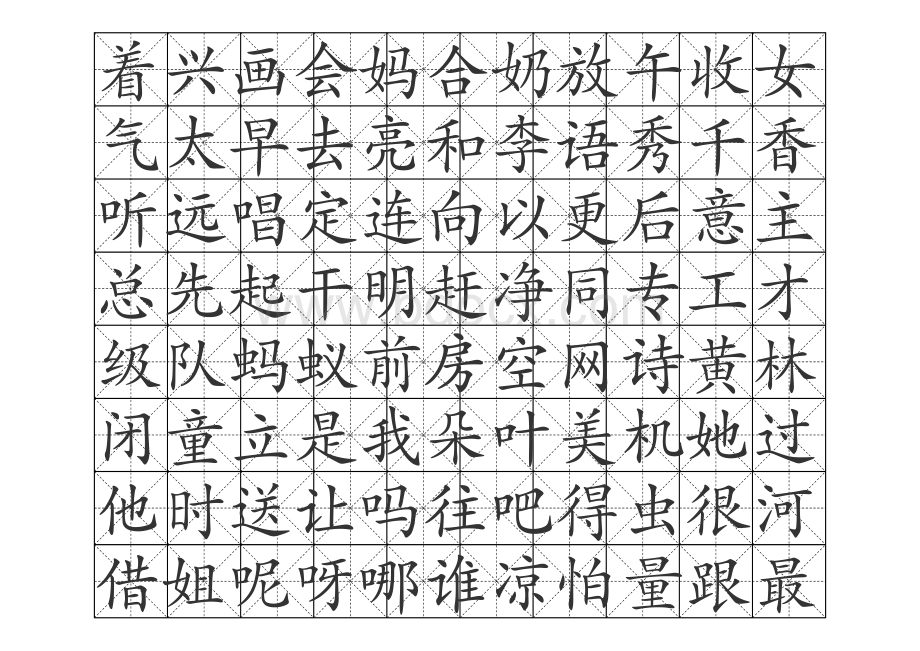 着兴画会妈合奶放午收女
气太早去亮和李语秀千香
听远唱定连向以更后意主
总先起干明赶净同专工才
级队蚂蚁前房空网诗黄林
闭童立是我朵叶美机她过
他时送让吗往吧得虫很河
借姐呢呀哪谁凉怕量跟最